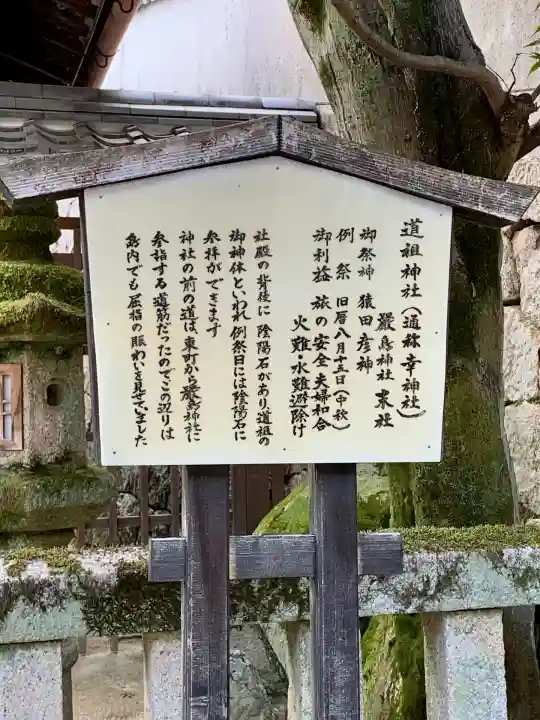 道祖神社(通称 幸神社)
嚴島神社 末社
御祭神 猿田彦神
例祭 旧暦八月十五日(中秋)
御利益 旅の安全・夫婦和合
火難・水難避除け
社殿の背後に 陰陽石があり道祖の
御神体といわれ 例祭日には陰陽石に
参拝ができます
神社の前の道は、東町から嚴島神社に
参詣する道筋だったのでこの辺りは
島内でも屈指の賑わいを見せていました